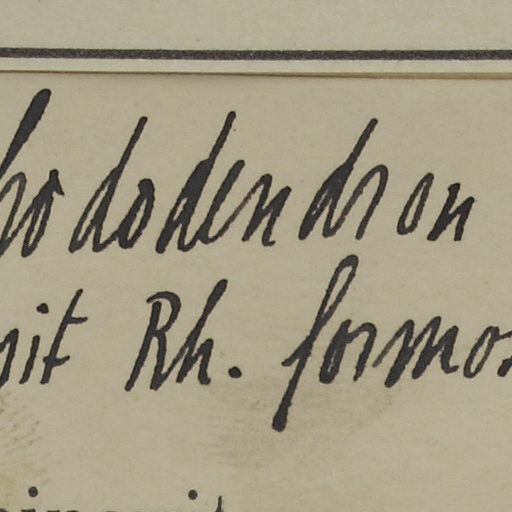 hododendron
sit Rh. formos